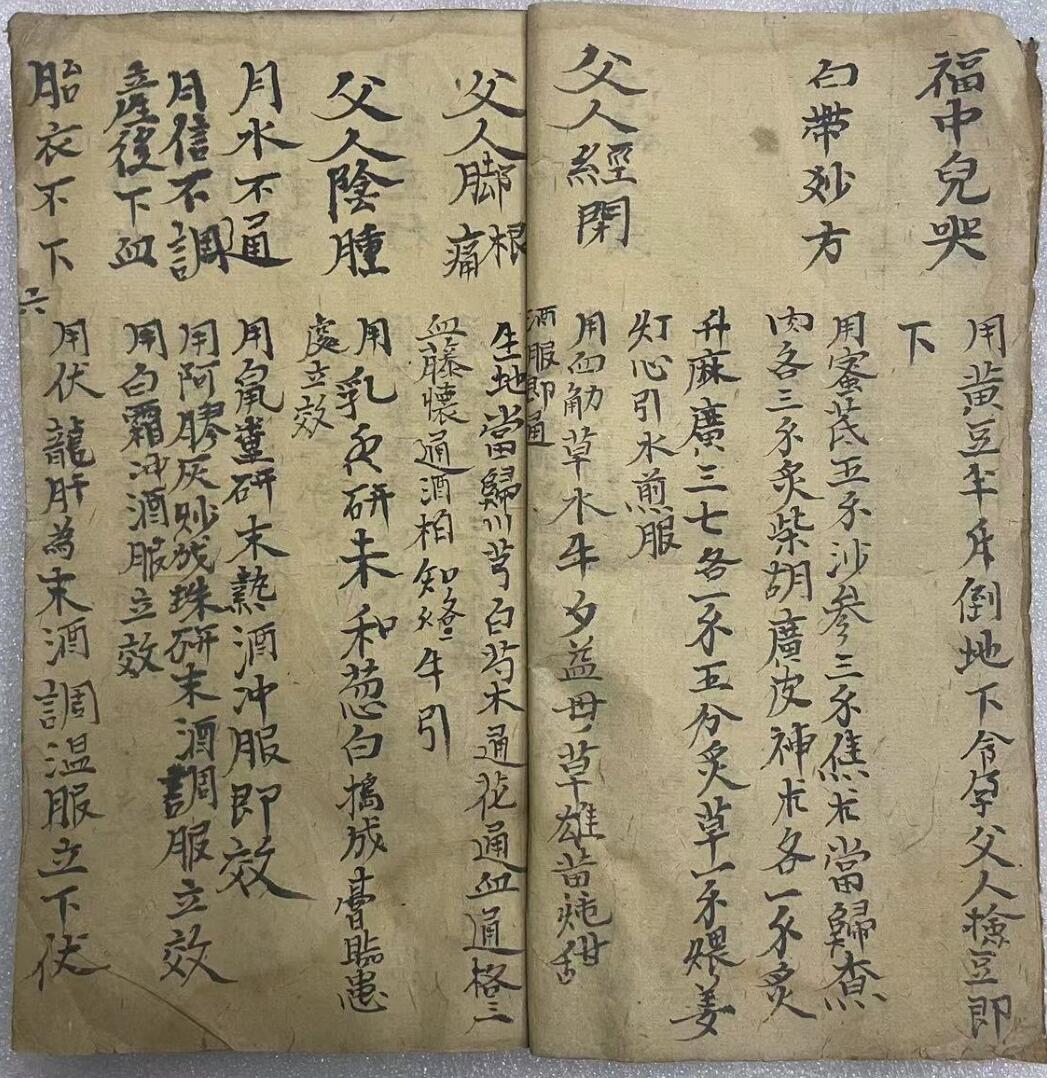 福中兒哭
用黃豆半斤倒地下令孕父人撿豆即
下
白帶妙方
用蜜芪五不沙參三不焦朮當歸杰
肉各三不炙柴胡廣皮神朮各一不炙
升麻廣三七各一不五分炙草一不煨姜
灯心引水煎服
父人經閉
用血觔草水牛夕益母草雄黃炖甜
酒服即通
父人脚根痛
生地當歸川芎白芍木通花通血通格三
血藤懷通酒柏知 牛引
父人陰腫
用乳 研未和葱白搗成膏臨患
處立效
月水不通
用鼠糞研末熱酒冲服即效
月信不調
用阿膠灰炒成珠研末酒調服立效
產後下血
用白霜冲酒服立效
胎衣不下
用伏龍肝為末酒調温服立下伏
六